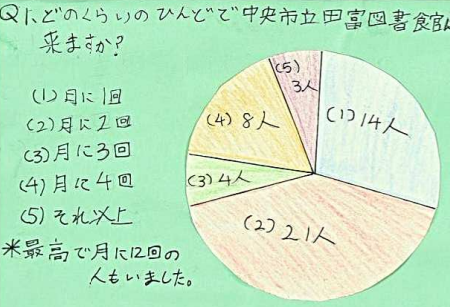 Q1、どのくらいのひんどで中央市立田富図書館に
来ますか?
(1)月に1回
(2)月に2回
(3)月に3回
(4)月に4回
(5)それ以上
*最高で月に12回の
人もいました。
(5)
3人
(1)14人
(4)8人
(3)4人
(2)21人